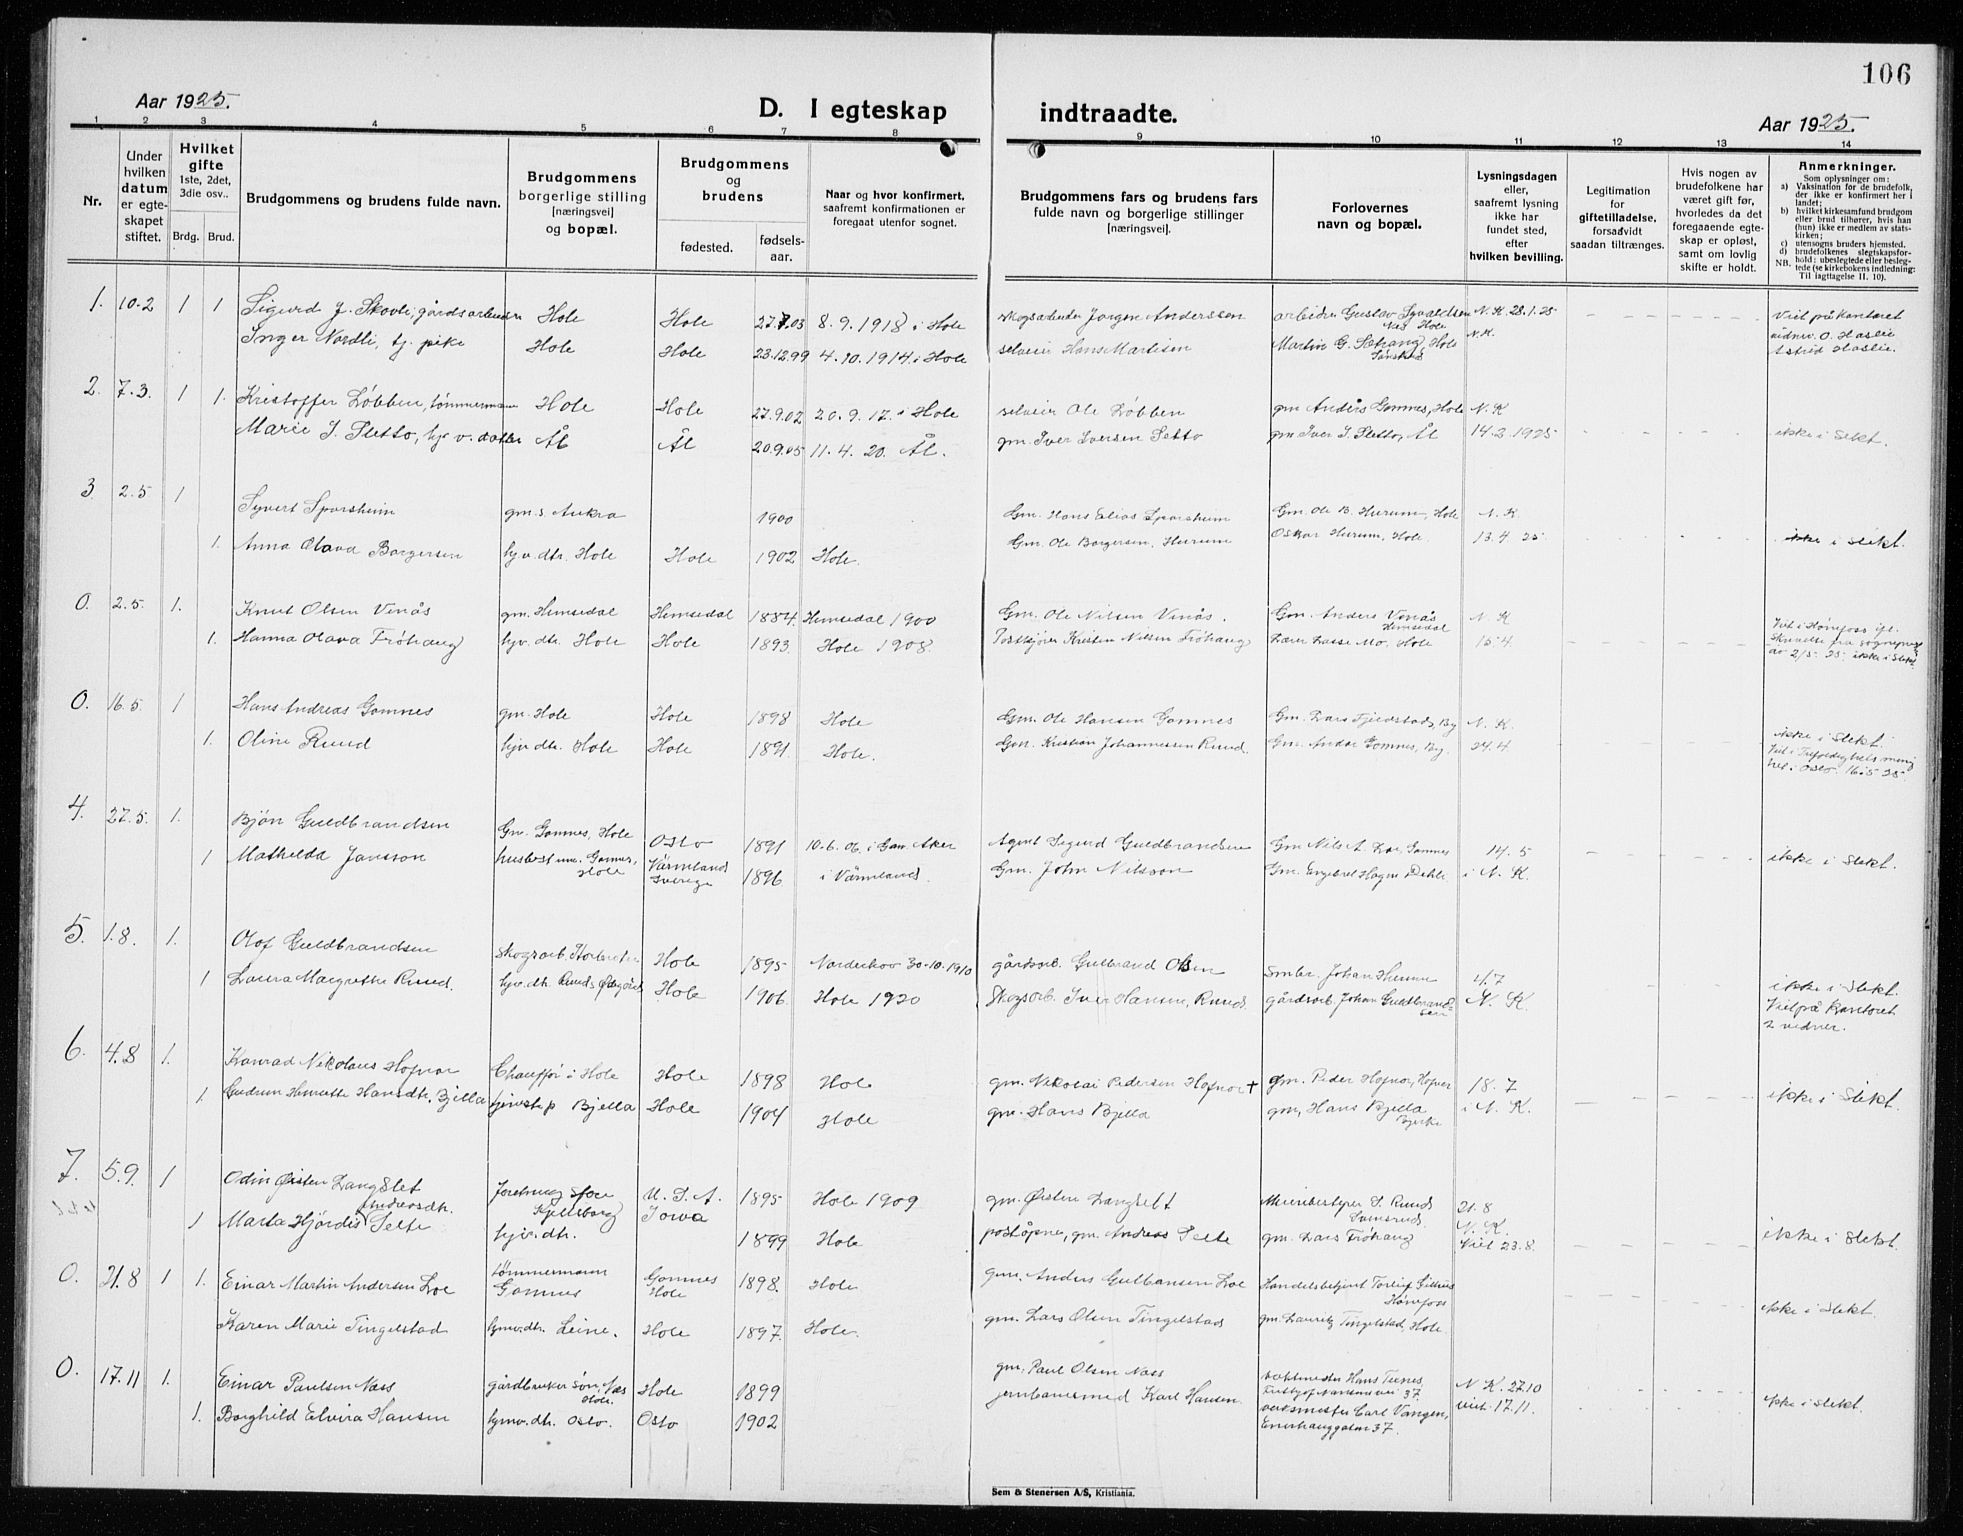 106
Aar 1925.
D. I egteskap indtraadte.
Aar 1925.
1 2 3 4 5 6 7 8 9 10 11 12 13 14
Nr.
Under hvilken datum er egteskapet stiftet.
Hvilket gifte 1ste, 2det, 3die osv..
Brdg. Brud.
Brudgommens og brudens fulde navn.
Brudgommens borgerlige stilling [næringsvei] og bopæl.
Brudgommens og brudens
fødested. fødsels-aar.
Naar og hvor konfirmert, saafremt konfirmationen er foregaat utenfor sognet.
Brudgommens fars og brudens fars fulde navn og borgerlige stillinger [næringsvei].
Forlovernes navn og bopæl.
Lysningsdagen eller, saafremt lysning ikke har fundet sted, efter hvilken bevilling.
Legitimation for giftetilladelse, forsaavidt saadan tiltrænges.
Hvis nogen av brudefolkene har været gift før, hvorledes da det foregaaende egteskap er opløst, samt om lovlig skifte er holdt.
Anmerkninger.
Som oplysninger om:
a) Vaksination for de brudefolk, der ikke er konfirmert her i landet;
b) hvilket kirkesamfund brudgom eller brud tilhører, hvis han (hun) ikke er medlem av statskirken;
c) utensogns bruders hjemsted.
d) brudefolkenes slegtskapsforhold: ubeslegtede eller beslegtede (se kirkebokens indledning: Til iagttagelse II. 10).
NB.
1. 10-2 1 1 Sigurd J. Skovli, gårdsarbeider Hole Hole 27.7.03 8.9.1918 i Hole skogsarbeider Jørgen Anderssen arbeider Gustav Syvaldsen Næs Hole N.K. 28.1.25 Viet på kontoret
Inger Nordli, tj. pike Hole Hole 23.12.99 4.10.1914 i Hole selveier Hans Martisen Martin G. Hole N.K. vidner. O. Haslie Astrid Haslie.
2. 7.3. 1 1. Kristoffer Løbben, tømmermann Hole Hole 27.9.02 20.9.17. i Hole selveier Ole Løbben gm Anders Gomnes, Hole N.K
Marie I. Sletto, hjv. datter Ål Ål 20.9.05 11.4.20. Ål. gm. Iver Iversen Setto gm Iver I. Sletto, Ål 14.2.1925 ikke i slekt.
3 2.5 1 Syvert Sporsheim gm.s Aukra 1900 Gm. Hans Elias Sporsheim Gm. Ole B. Hurum, Hole N.K.
1. Anna Olava Borgersen hjv. dtr. Hole Hole 1902 Hole. Gm. Ole Borgersen, Hurum Oskar Hurum, Hole. 13.4.25. ikke i slekt.
0. 2.5. 1. Knut Olsen Venås gm. Hemsedal Hemsedal 1884. Hemsedal 1900 Gm. Ole Nilsen Venås. Gm. Anders Venås Hemsedal N.K Viet i Hønefoss
1. Hanna Olava Frøhaug hjv. dtr. Hole Hole 1893. Hole 1908. Postkjører Kristen Nilsen Frøhaug Lærer Lasse Mo. Hole 15.4 fra sogneprest av 2/5. 25. ikke i slekt
0. 16.5. 1 Hans Andreas Gomnes gm. Hole Hole 1898 Hole Gm. Ole Hansen Gomnes Gm. Lars Fjeldstad, By N.K.
1. Oline Rund hjv. dtr. Hole Hole 1891 Hole. Gm. Kristian Johannessen Rund. Gm. Anders Gomnes, By. 24.4 ikke i slekt. Viet i Trefoldighets menighet i Oslo. 16.5.25
4. 27.5. 1. Bjørn Guldbrandsen Gm. Gomnes, Hole Oslo 1891 10-6.06. i Gam. Aker Agent Sigurd Guldbrandsen Gm Nils A. Loe, Gomnes 14.5
1 Mathilda Jansson Gomnes, Hole Värmland Sverige 1896 i Värmland. Gm. John Nilsson Gm. Engebret Hagen Dehle i N.K. ikke i slekt.
5. 1.8. 1. Olof Guldbrandsen Skogsarb. Hole 1895 Norderhov 30-10.1910 gårdsarb. Gulbrand Olsen Smbr. Johan 4/7
1 Laura Margrethe Rund. hjv. dtr. Rund Hole 1906. Hole 1920 Skogsarb. Iver Hansen, Rund gårdsarb. Johan Guldbrandsen N.K. ikke i slekt. Viet på kontoret 2 vidner.
6. 4.8 1. Konrad Nikolaus Hofnor Chauffør i Hole Hole 1898 Hole gm. Nikolai Pedersen Hofnor † gm. Peder Hofnor, Hofnor 18.7
1. Gudrun Henriette Hansdtr. Bjella Bjella Hole 1904 Hole gm. Hans Bjella gm, Hans Bjella Bjerke i N.K. ikke i slekt.
7. 5.9. 1 Odin Østen Langslet U.S.A. 1895 Hole 1909 gm. Østen Langslet Meieribestyrer S. Rund Svensrud. 21.8
1 Marta Hjørdis Andersdtr. Selte hjv. dtr. Iowa 1899 Hole poståpner, gm. Andreas Selte gm. Lars Frøhaug N.K. Viet 23.8. ikke i slekt.
0. 21.8 1 1. Einar Martin Andersen Loe tømmermann Gomnes Gomnes Hole 1898. Hole gm. Anders Gulbransen Loe Handelsbetjent Torleif Hønefoss
Karen Marie Tingelstad hjmv. dtr. Leine. Hole 1897. Hole. gm. Lars Olsen Tingelstad gm. Lauritz Tingelstad, Hole. ikke i slekt.
0. 17.11 1. Einar Paulsen Næss gårdbruker søn, Næs Hole. Hole 1899 gm. Paul Olsen Næss Hans 37. N.K. 27.10
1. Borghild Elvira Hansen hjmv. dtr. Oslo. Oslo 1902 jernbanemand Karl Hansen verksmester Carl Vangen, Enerhauggaten 37. viet 17.11. ikke i slekt.
Sem & Stenersen A/S, Kristiania.